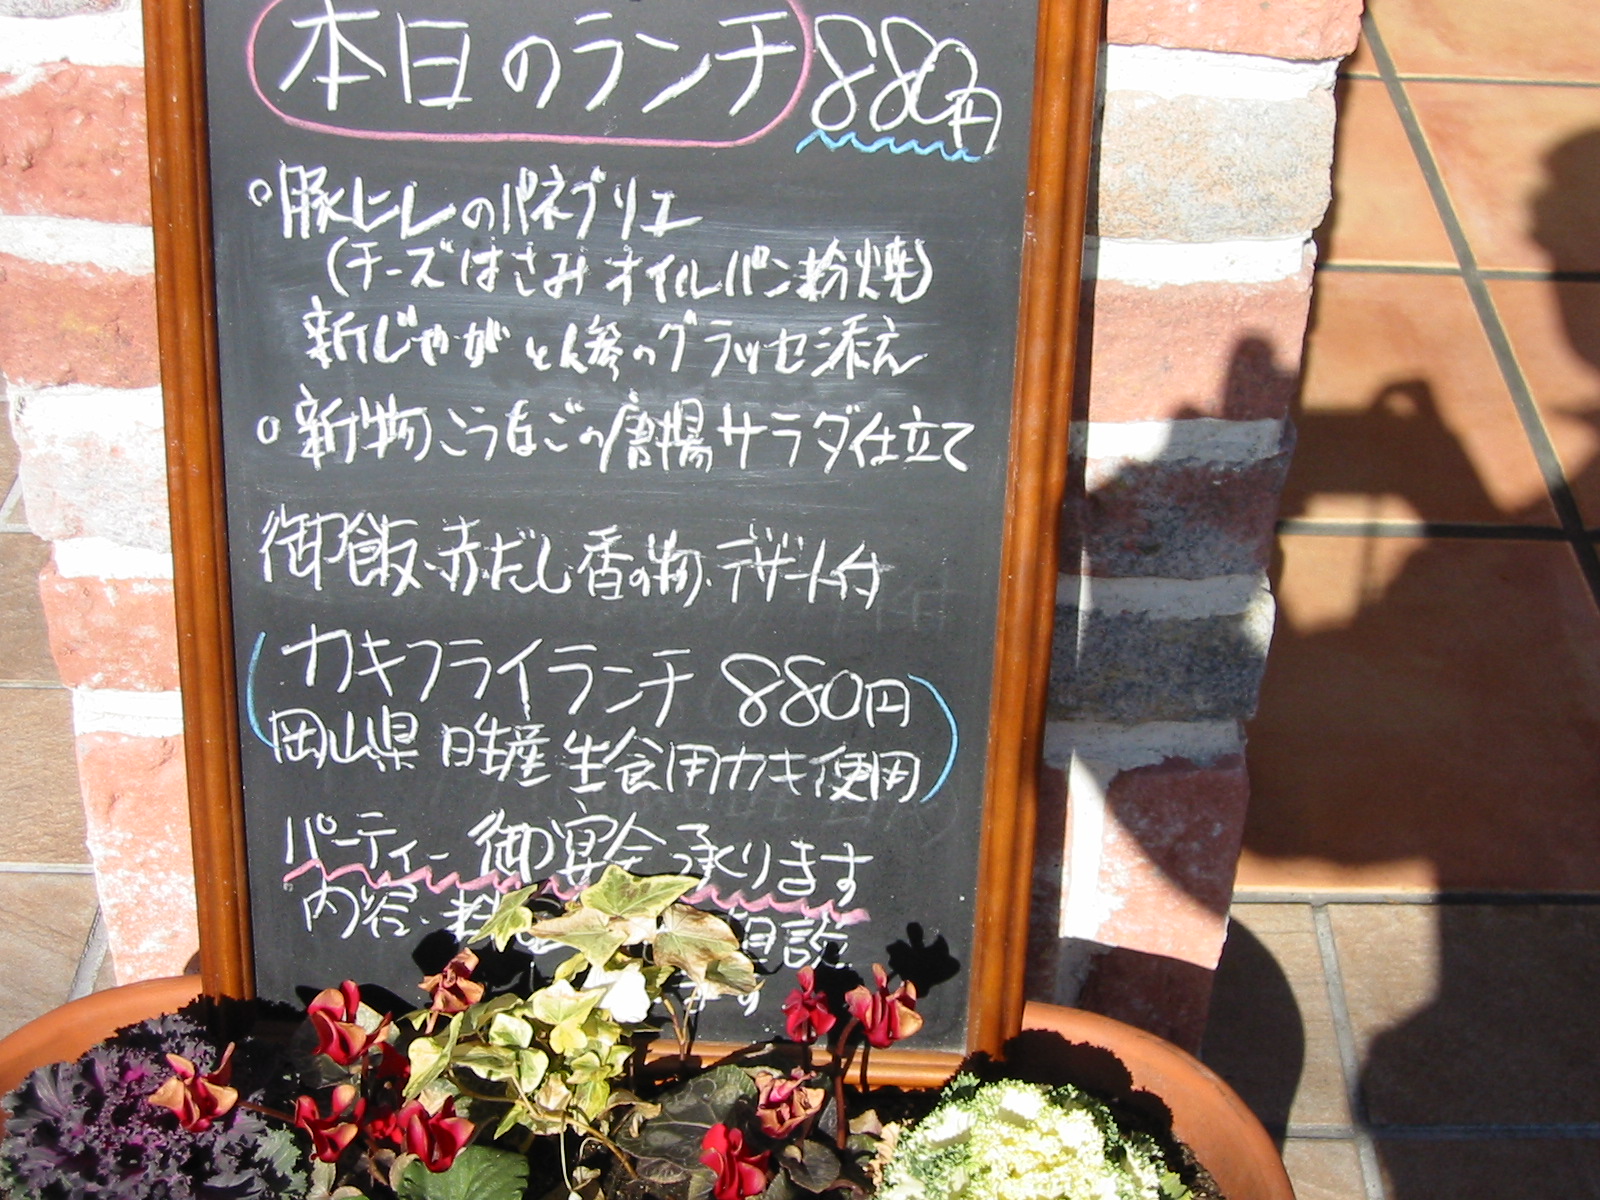 本日のランチ 880円
。豚ヒレのパネブリエ
(チーズはさみオイルパン粉焼)
新じゃがと人参のグラッセ添え
。新物こうなごの唐揚サラダ仕立て
御飯・赤だし・香の物・デザート付
カキフライランチ 880円
岡山県 日生産 生食用カキ使用
パーティー 御宴会 承ります
内容・料 相談
ます